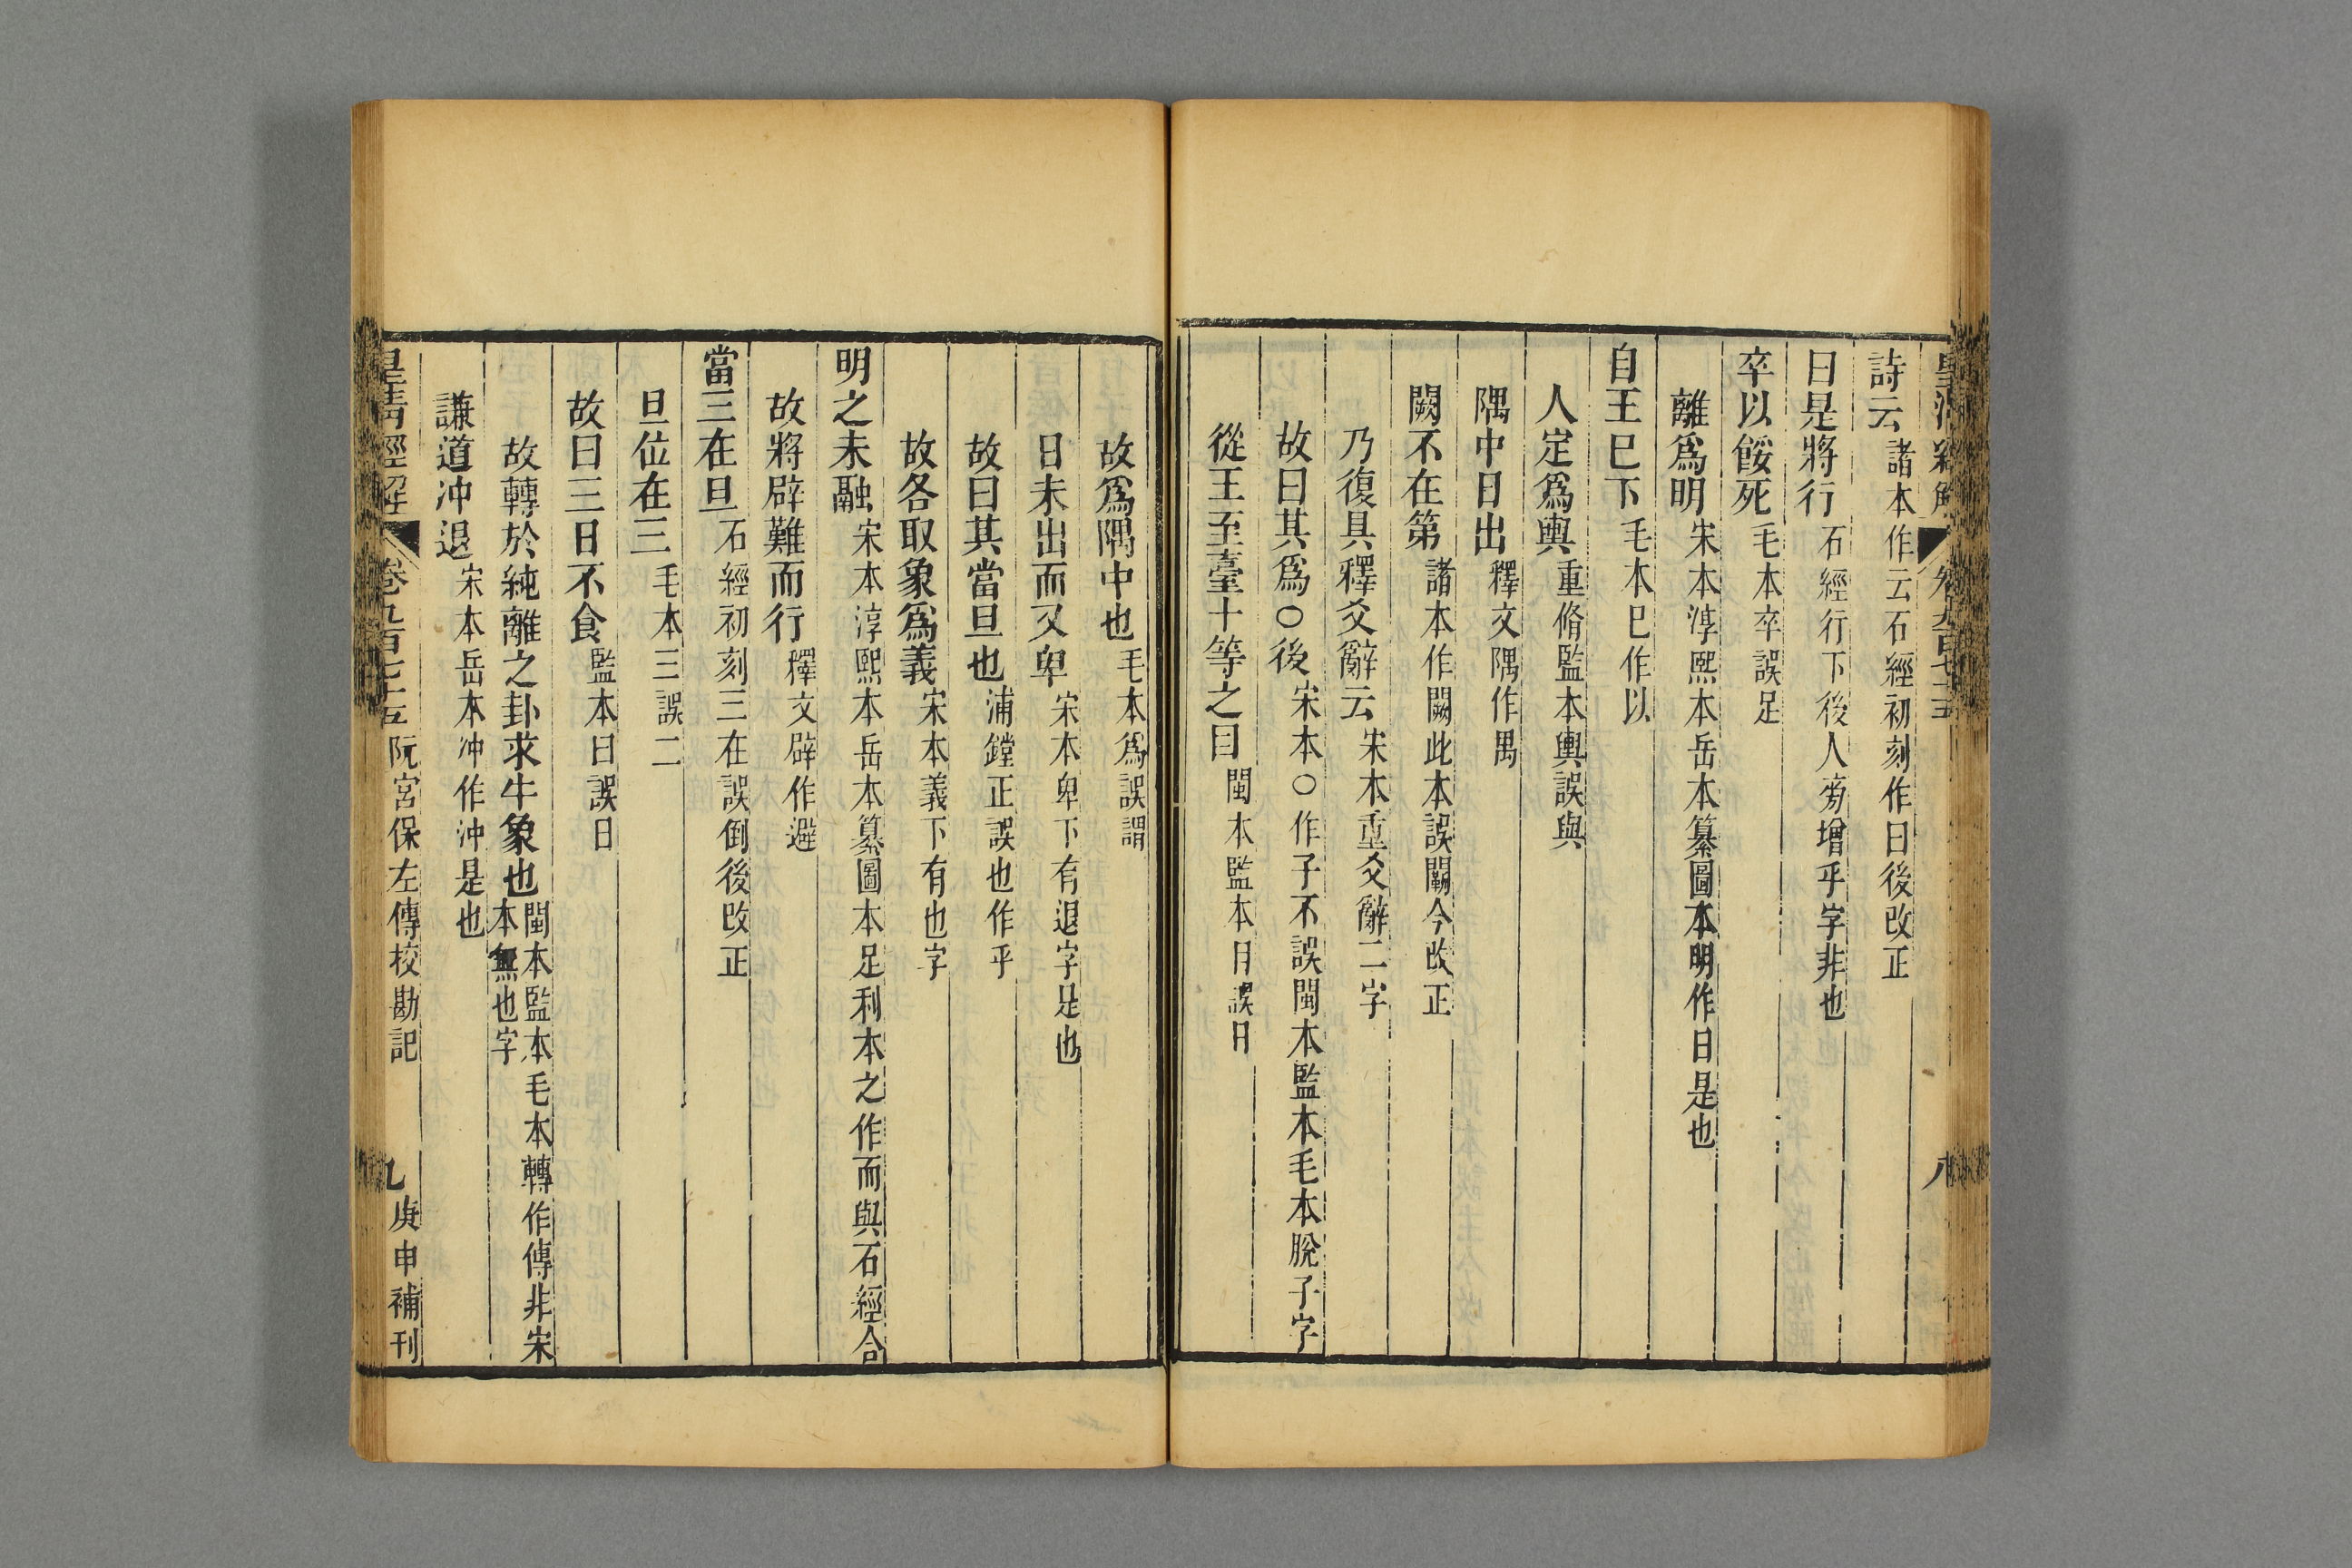 詩云諸本作云石經初刻作日後改正
曰是將行石經行下後人旁增乎字非也
卒以餒死毛本卒誤足
離爲明宋本淳熙本岳本纂圖本明作日是也
自王巳下毛本巳作以
人定爲輿重脩監本輿誤與
隅中日出釋文隅作禺
闕不在第諸本作闕此本誤闗今改正
乃復具釋爻辭云宋本重爻辭二字
故曰其爲○後宋本○作子不誤閩本監本毛本脫子字
從王至臺十等之目閩本監本目誤日
故爲隅中也毛本爲誤謂
日未出而又卑宋本卑下有退字是也
故曰其當旦也浦鏜正誤也作乎
故各取象爲義宋本義下有也字
明之未融宋本淳熙本岳本纂圖本足利本之作而與石經合
故將辟難而行釋文辟作避
當三在旦石經初刻三在誤倒後改正
旦位在三毛本三誤二
故曰三日不食監本曰誤日
故轉於純離之卦求牛象也閩本監本毛本轉作傳非宋
本無也字
謙道冲退宋本岳本冲作沖是也
皇清經解 卷九百七十五 阮宮保左傳校勘記 九 庚申補刊